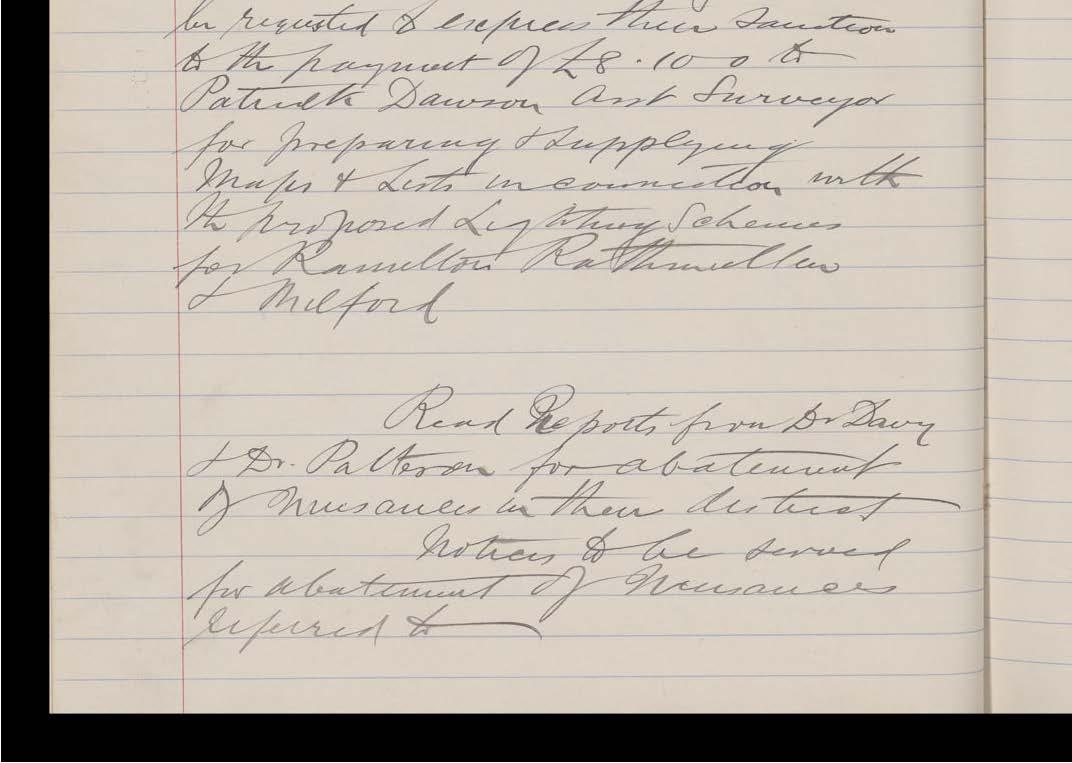 be requested to express their sanction
to the payment of £8.10 0 to
Patrick Dawson Asst Surveyor
for preparing & supplying
Maps & Lists in connection with
the proposed Lighting Schemes
for Ramelton Rathmullen
& Milford
Read Reports from Dr Davy
& Dr. Patterson for abatement
of Nuisances in their district
Notices to be served
for abatement of Nuisances
referred to